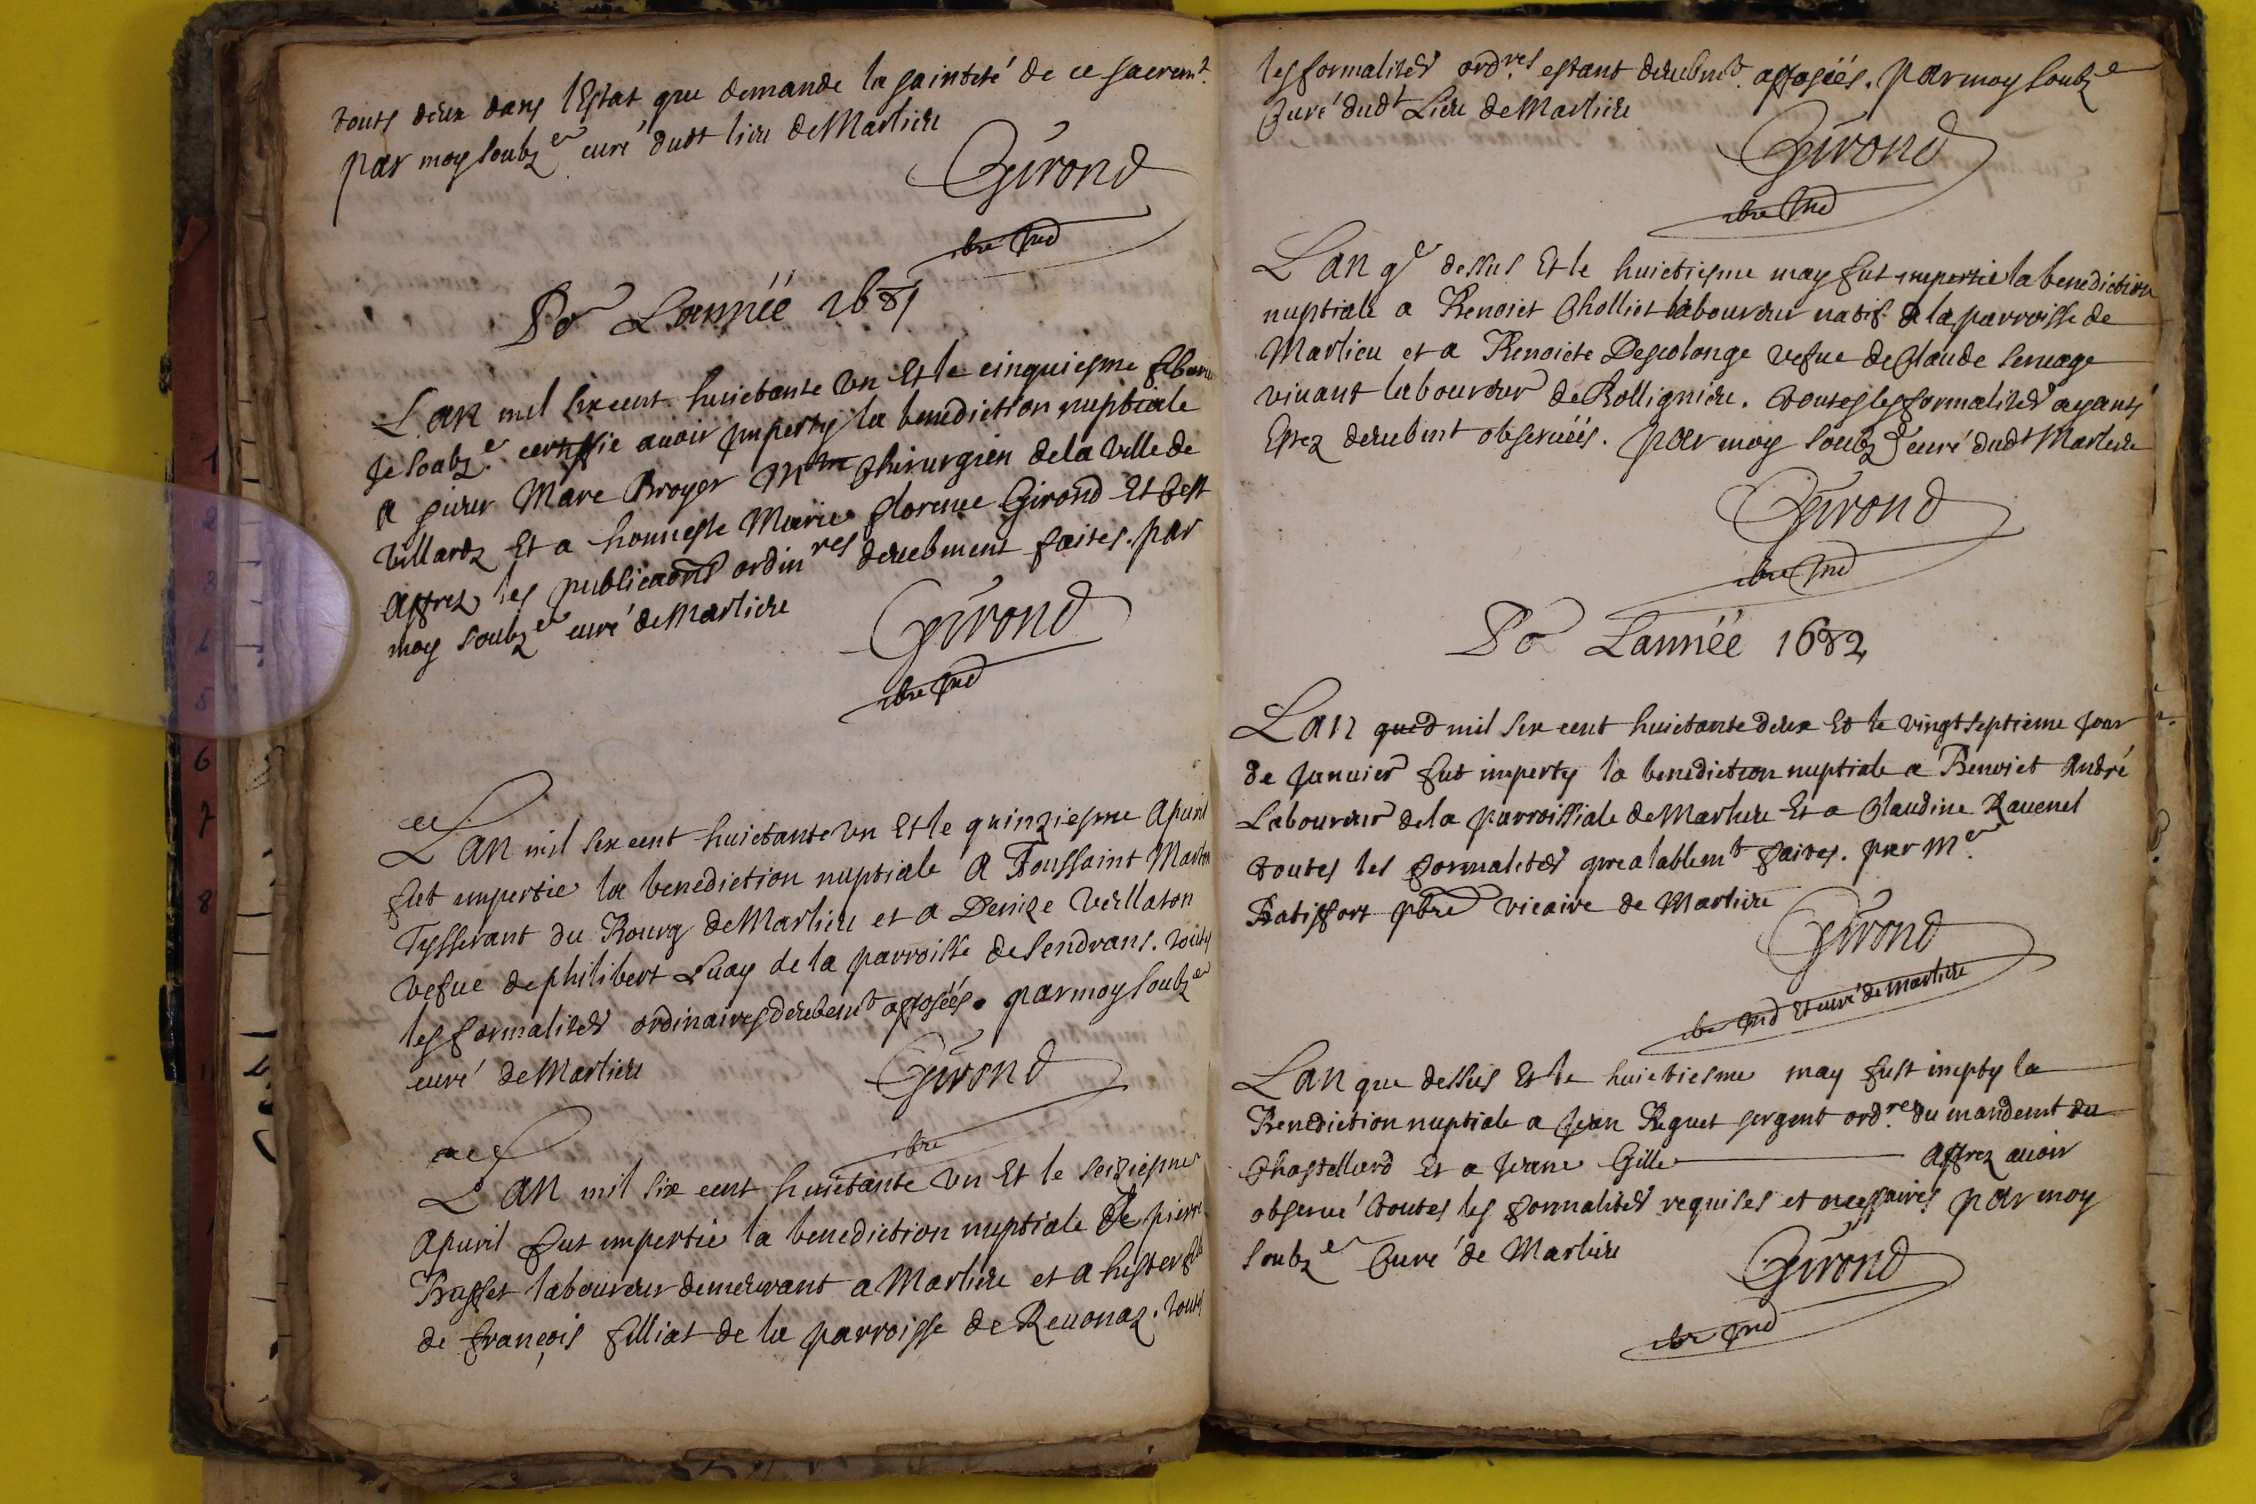 touts deux dans l'Estat que demande la sainteté de ce sacremt.
par moy soubz.é curé dudt lieu de Marlieu
Girond
Pbre Ind
Por Lannée 1681
L'an mil six cent huictante Un Et le cinquiesme
Je soubz.é certiffie auoir jmperty la benediction nuptiale
a sieur Marc Broyer Mtre chirurgien de la Ville de
Villardz Et a honneste Marie florence Girond Et Cest
Apprez les publicaons ordinres deuebment faites. par
moy soubzé curé de Marlieu
Girond
Pbre Ind
L'an mil six cent huictante Un Et le quinziesme Apuril
fut impertie la benediction nuptiale A Toussaint
Tysserant du Bourg de Marlieu et a Denize Veillaton
Vefue de philibert Luay de la parroisse de Sendrans. touts
les formalités ordinaires deuebemt aposéés. par moy soubzé
curé de Marlieu
Girond
Pbre
L'an mil six cent huictante Un Et le seiziesme
Apuril fut impertie la benediction nuptiale De pierre
Buffet laboureur demeurant a Marlieu et a
de françois filliat de la parroisse de Reuonaz. touts
les formalités ordres estant deuebmt aposéés. par moy soubzé
Curé dudt Lieu de Marlieu
Girond
Pbre Ind
L'an qe dessus Et le huictiesme may fut impertie la benediction
nuptiale a Benoict Cholliet laboureur natif de la parroisse de
Marlieu et a Benoicte Descolonge vefue de Claude
viuant laboureur de Bollignieu. toutes les formalités ayants
Estez deuebmt obseruéés. par moy soubzé curé dudt Marlieu
Girond
Pbre Ind
Por Lannée 1682
L'an qued mil six cent huictante deux Et le vingt septieme jour
de Januier fut imperty la benediction nuptiale a Benoict André
Laboureur de la parroissiale de Marlieu Et a Claudine Rauenel
toutes les formalités prealablemt faites. par Mre
Batiffort pbre vicaire de Marlieu
Girond
Pbre Ind Et curé de Marlieu
L'an que dessus Et le huictiesme may fust impty la
Benediction nuptiale a Jean Reguet sergent ordre du mandemt du
Chastellard Et a Jeane Gille Apprez auoir
obserué toutes les formalités requises et necessaires par moy
soubzé Curé de Marlieu
Girond
Pbre Ind